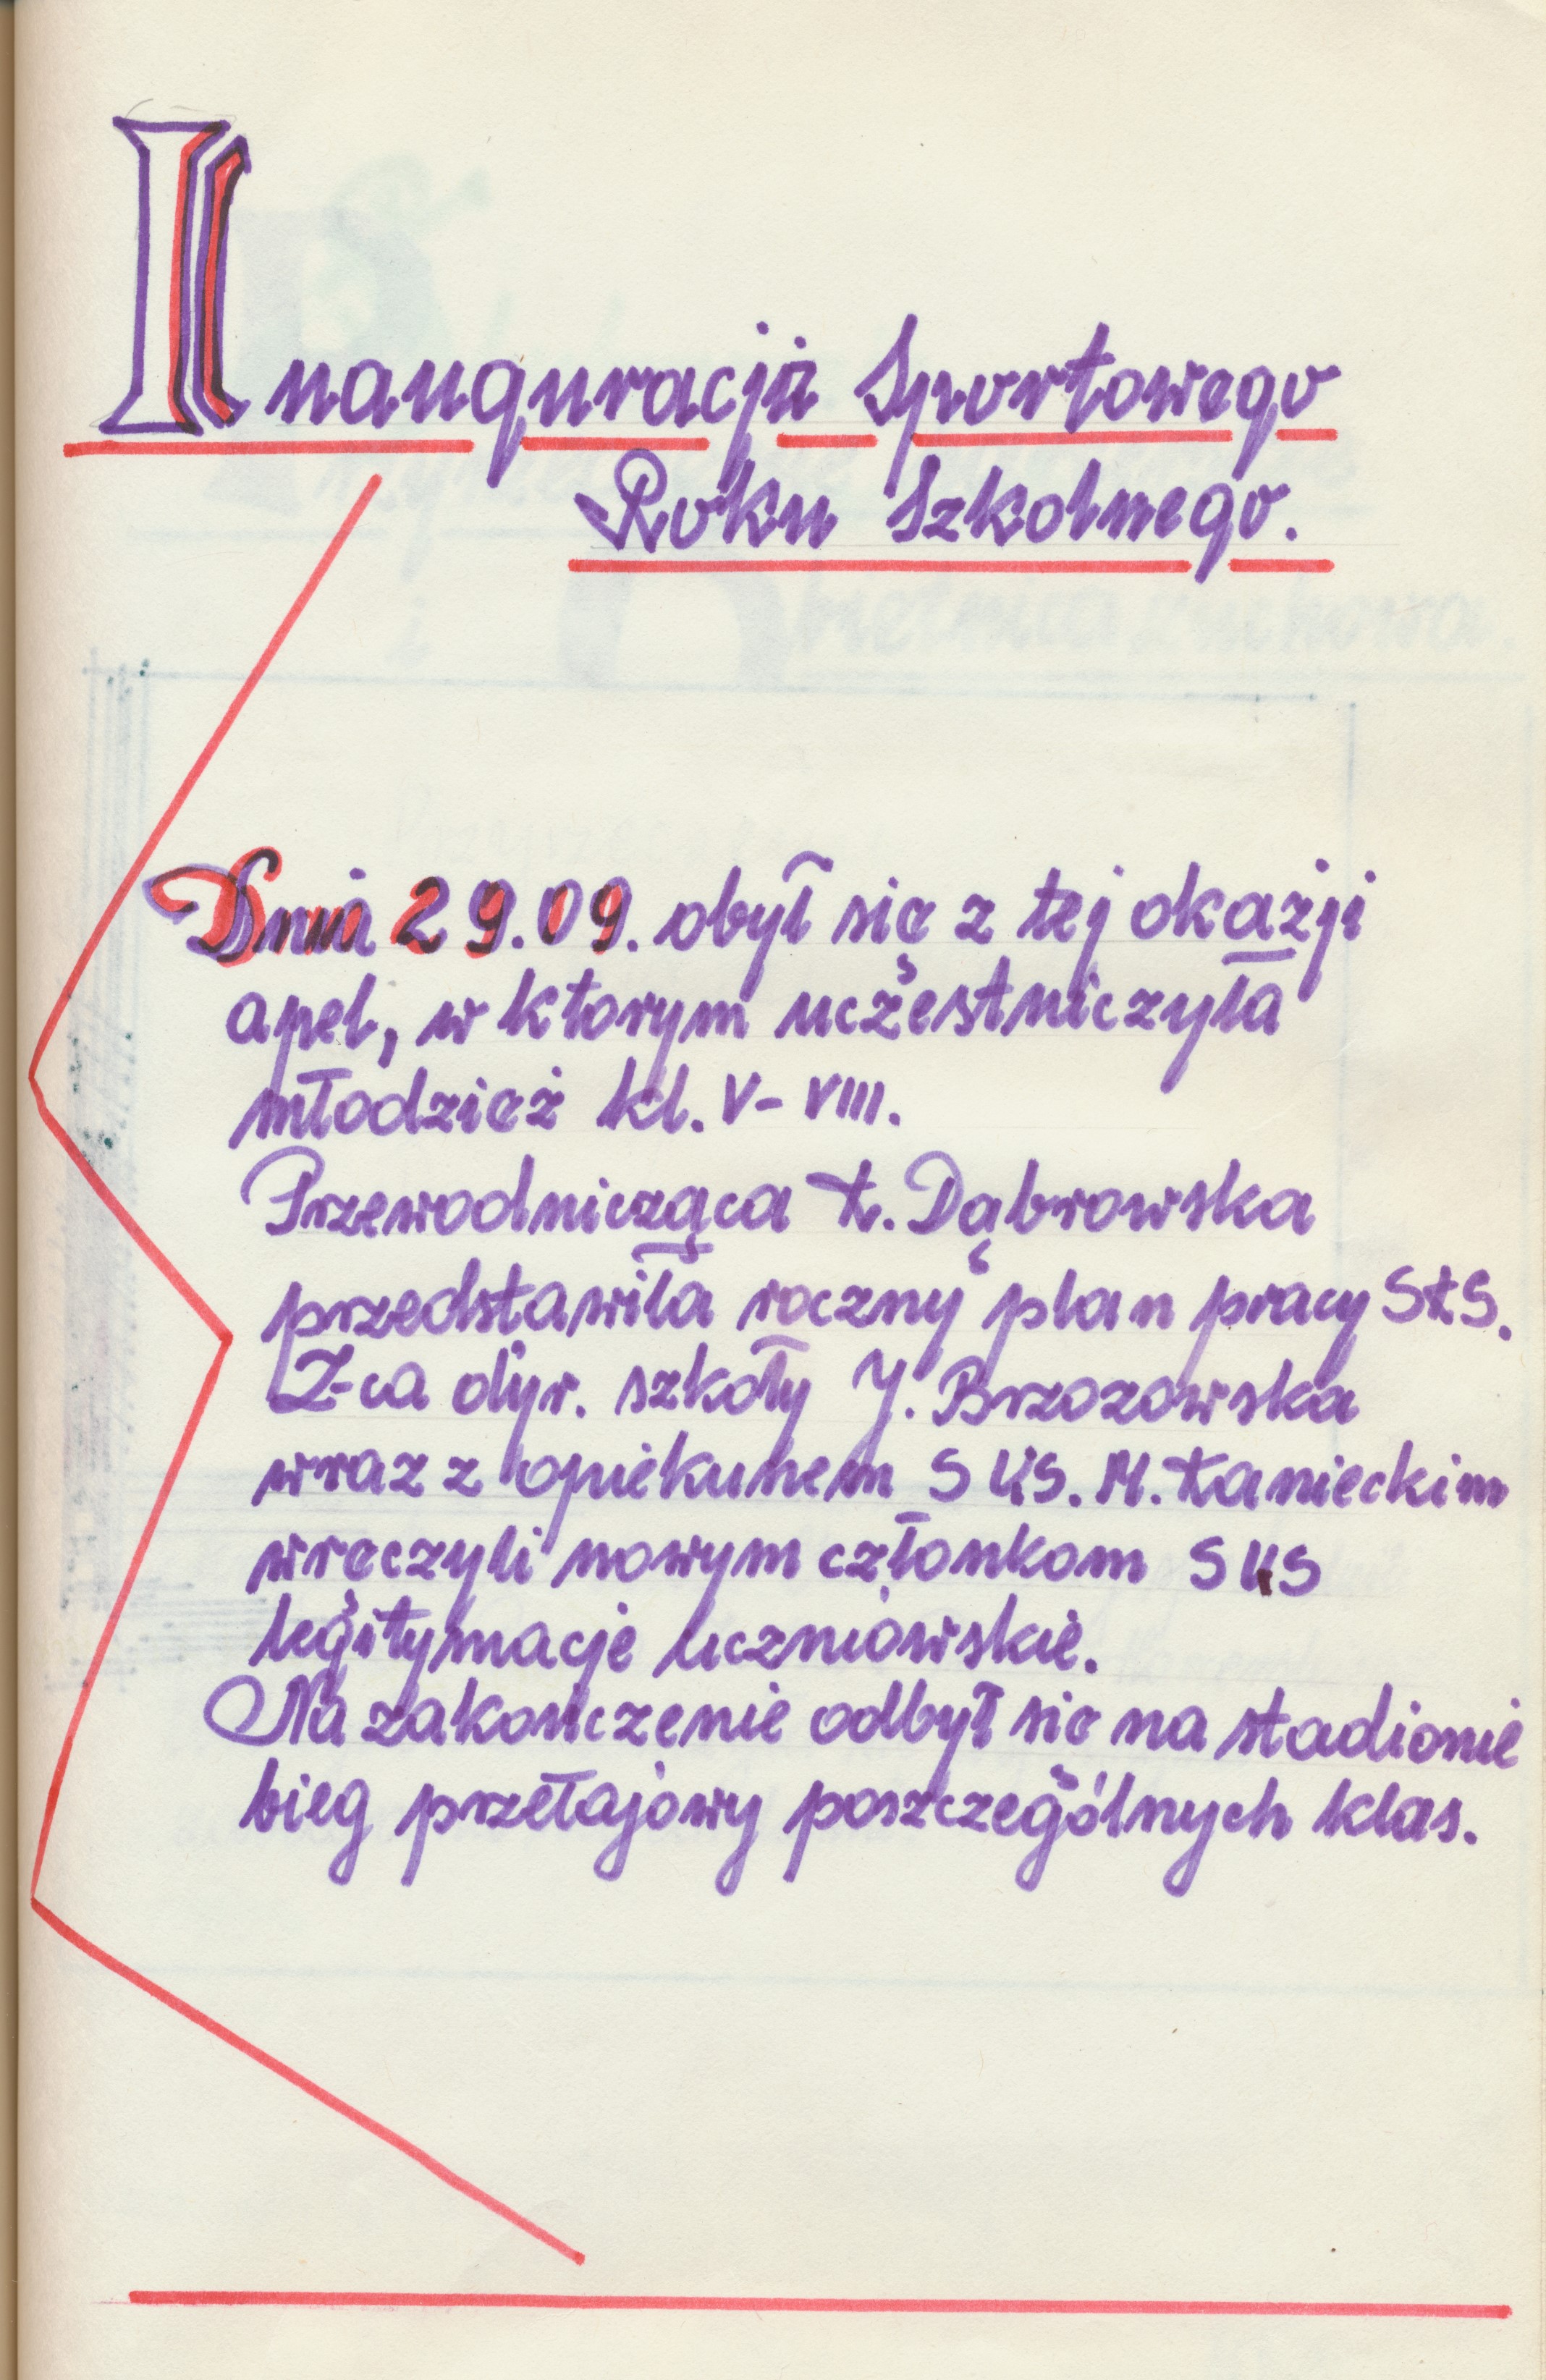 Inauguracja Sportowego
Roku Szkolnego.
Dnia 29.09. obył się z tej okazji
apel, w ktorym uczestniczyła
młodzież kl. V - VIII.
Przewodnicząca Ł. Dąbrowska
przedstawiła roczny plan pracy SKS.
Z-ca dyr. szkoły J. Brzozowska
wraz z opiekunem SKS. M. Łanieckim
wręczyli nowym członkom SKS
legitymacje uczniowskie.
Na zakończenie odbył się na stadionie
bieg przełajowy poszczególnych klas.